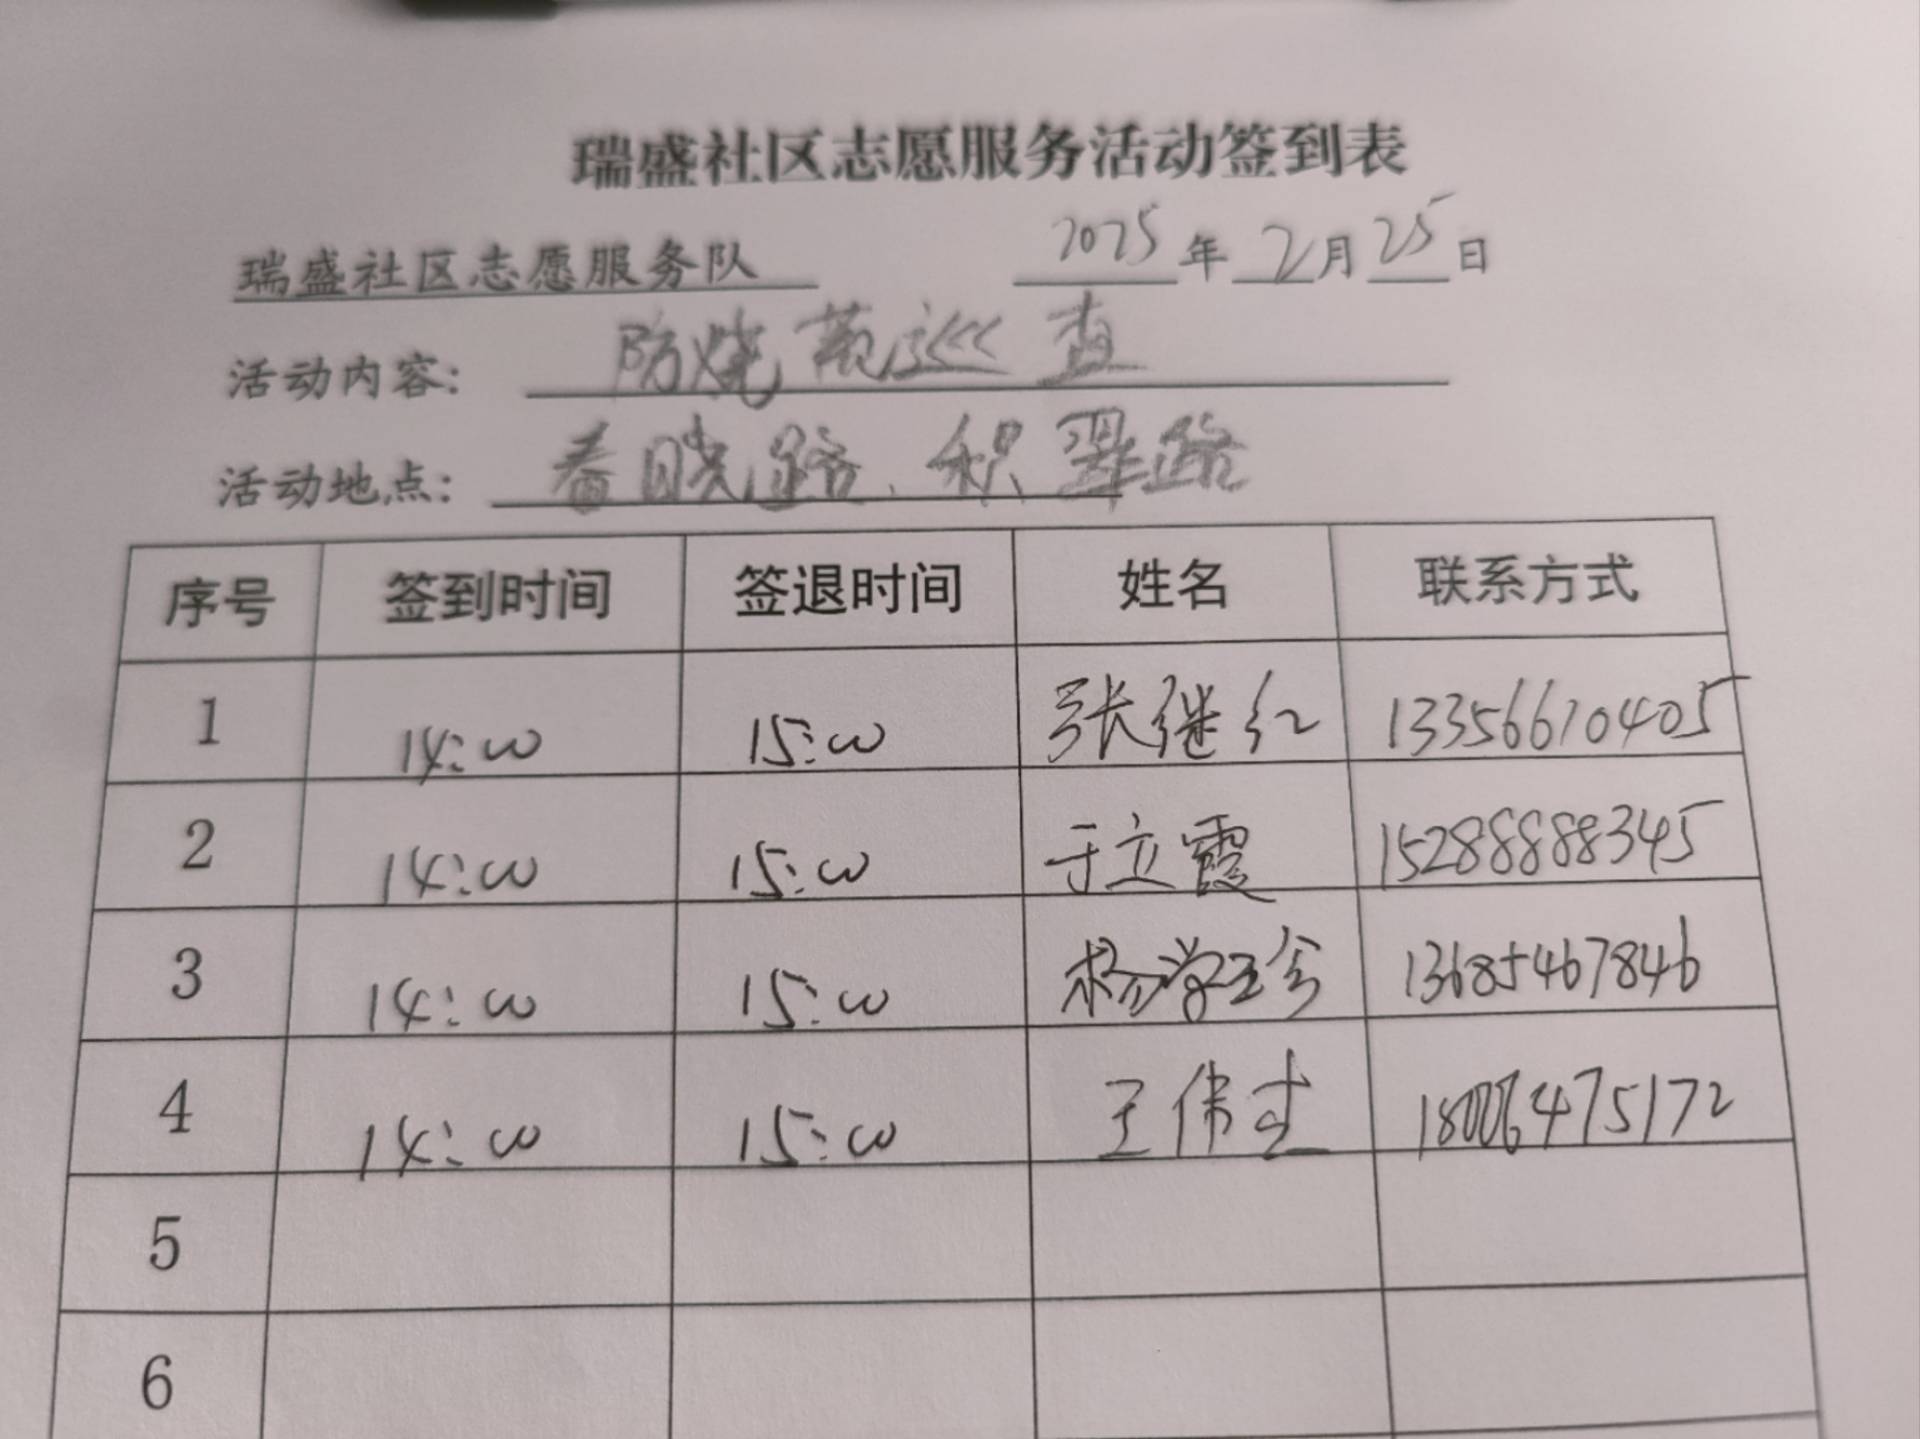 瑞盛社区志愿服务活动签到表
瑞盛社区志愿服务队 2025年2月25日
活动内容: 防烧荒巡查
活动地点: 春晓路、积翠路
序号 签到时间 签退时间 姓名 联系方式
1 14:00 15:00 张继红 13356610405
2 14:00 15:00 于立霞 15288888345
3 14:00 15:00 杨学 13685467846
4 14:00 15:00 王伟 18006475172
5
6